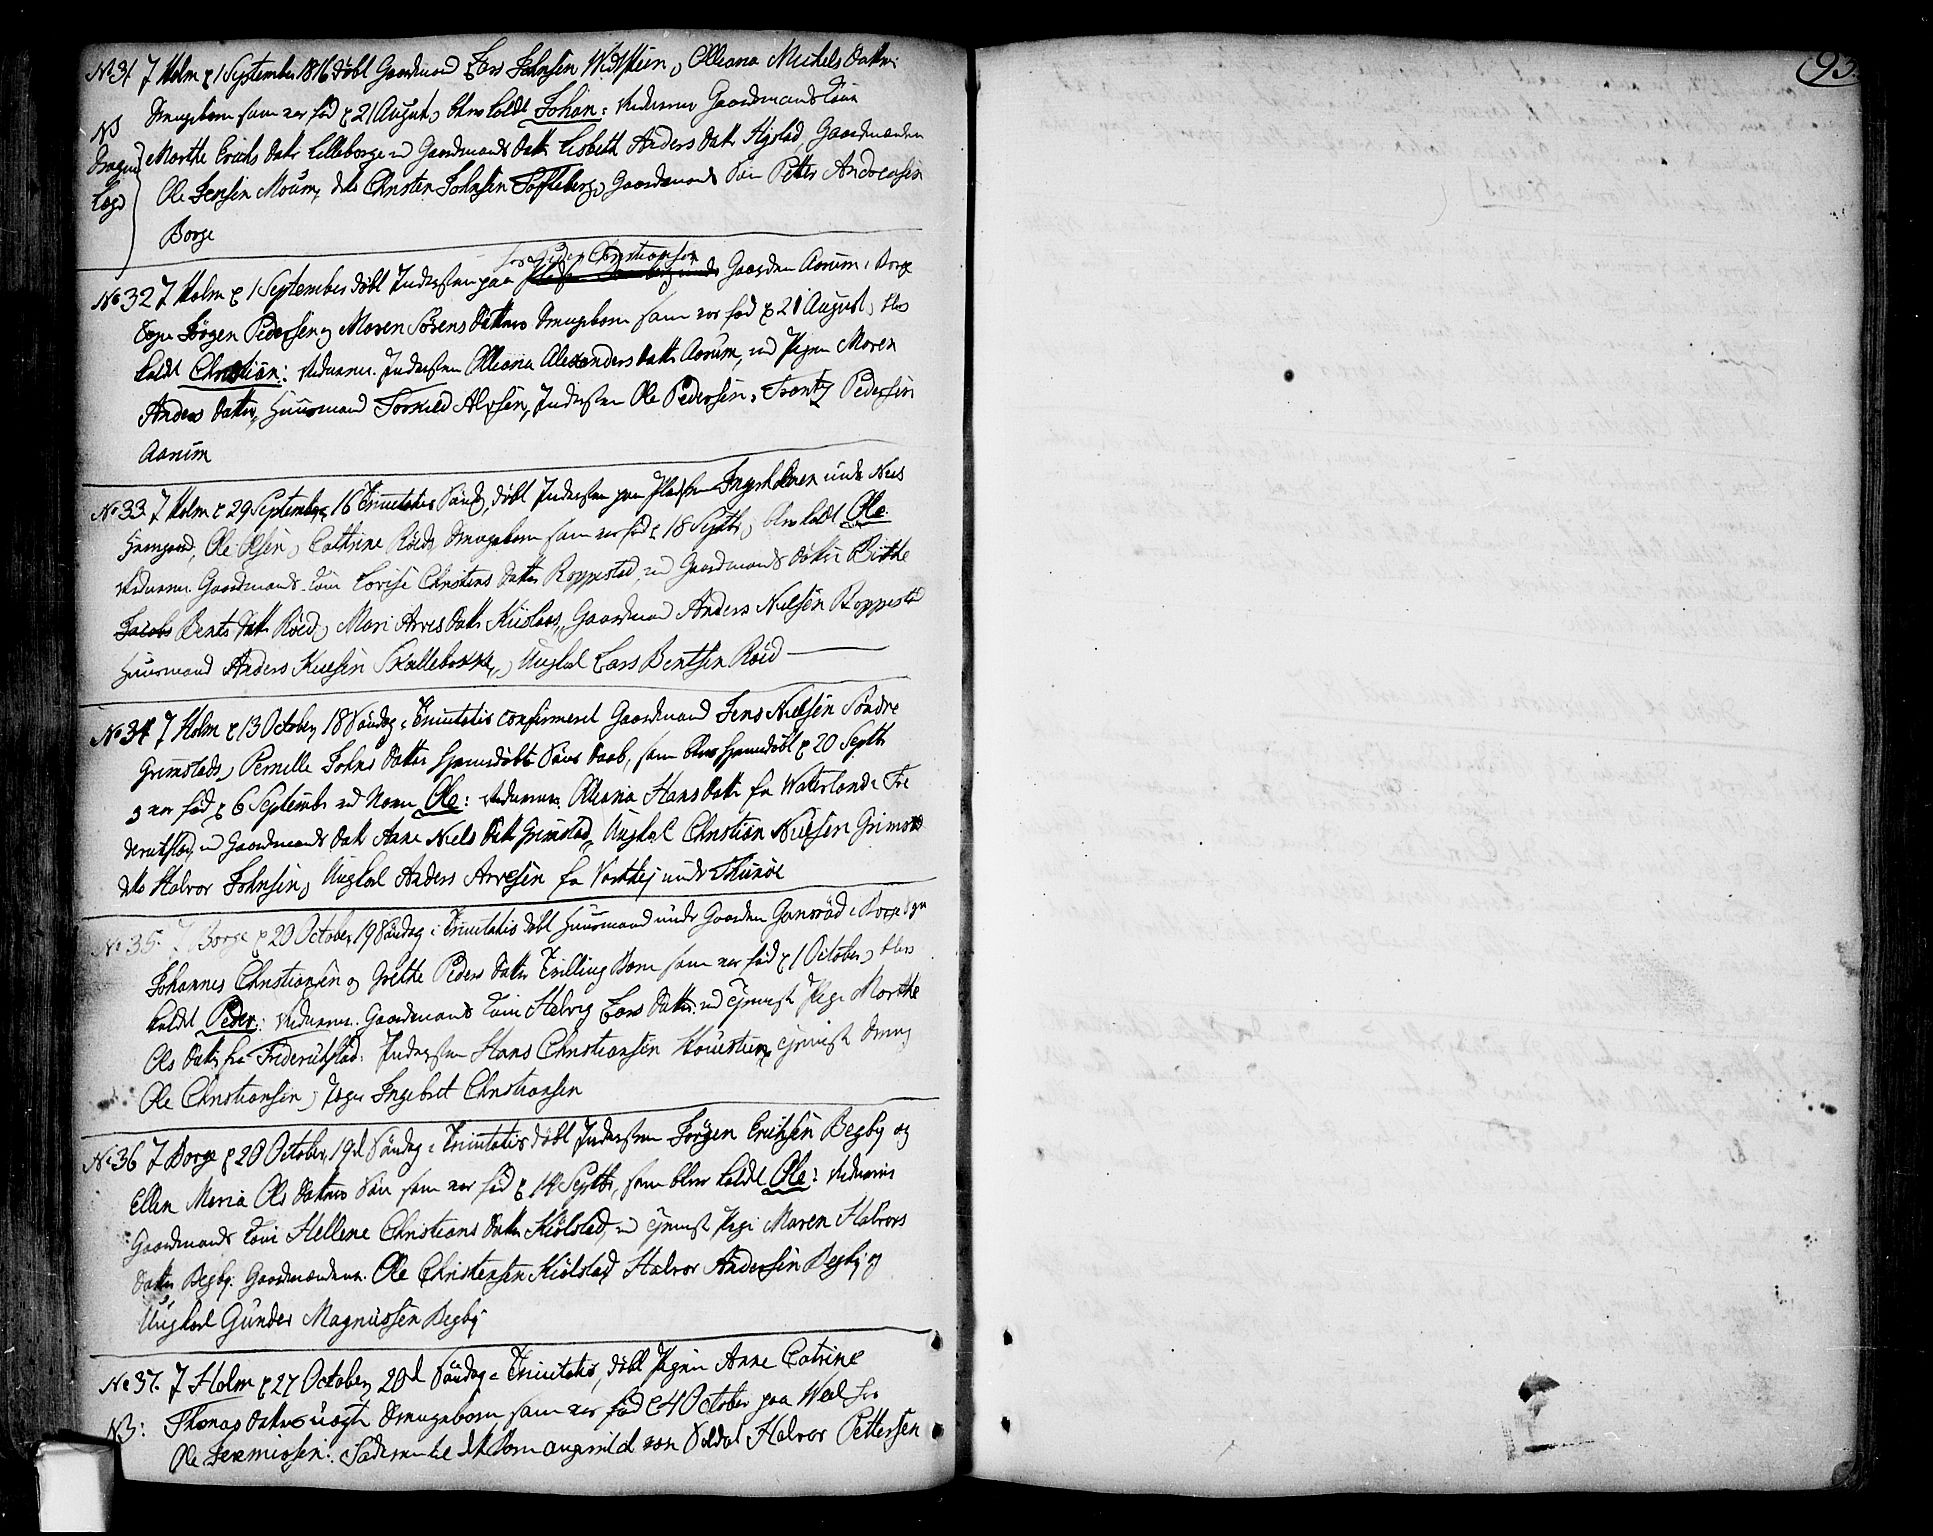 No 31 I Holm d 1 September 1816 døbt Gaardmand Lars Johnsen Widsteen og Olleana Michels Datters
Drengebarn som var fød d 21 August, blev kaldt Johan: Vidnerne Gaardmands Kone
NB
Marthe Erichs Datter Lilleborge ved Gaardmands Datter Lisbeth Anders Datter Hystad, Gaardmændene
Dragun Lægd
Ole Jensen Moum, dito Christen Johnsen Tofteberg, Gaardmands Søn Petter Andreasen
Borge
for Peder Christiansen
No 32 I Holm d 1 September døbt Indersten paa Gaarden Aarum i Borge
Sogn Jørgen Pedersen og Maren Sørens Datters Drengebarn som var fød d 21 August, blev
kaldt Christian: Vidnerne. Indersten Olleana Alexanders Datter Aarum, ved Pigen Maren
Anders Datter, Huusmand Torkild Alfsen, Indersten Ole Pedersen, Frantz Pedersen
Aarum
No 33 I Holm d 29 September, 16 Trinitatis Søndag, døbt Indersten paa Pladsen Ingerholmen under Nees
Herregaard, Ole Olsen og Cathrine Røeds Drengebarn som var fød d 18 Septbr, blev kaldt Ole
Vidnerne. Gaardmands Kone Lovise Christens Datter Roppestad, ved Gaardmands Datter Birthe
Jacobs Bents Datter Røed, Mari Arves Datter Kiislaas, Gaardmand Anders Nielsen Roppestad
Huusmand Anders Knesen Skallebakke, Ungkarl Lars Bentsen Røed
No 34 I Holm d 13 October, 18 Søndag i Trinitatis confirmeret Gaardmand Jens Nielsen Søndre
Grimstads og Pernille Johns Datters hjemdøbte Søns Daab, som blev hjemdøbt d 20 Septbr
og var fød d 6 Septembr ved Navn Ole: Vidnerne, Olleana Hans Datter fra Waterland i Fre
derikstad, ved Gaardmands Datter Anne Niels Datter Grimstad, Ungkarl Christian Nielsen Grimstad
dito Halvor Johnsen, Ungkarl Anders Arvesen fra under Thunøe
No 35. I Borge d 20 October, 19 Søndag i Trinitatis døbt Huusmand under Gaarden Gansrød i Borge Sogn
Johannes Christiansen og Grethe Peders Datters Tvilling Barn som var fød d 1 October, blev
kaldt Peder: Vidnerne. Gaardmands Kone Helvig Lars Datter, ved Tjeneste Pige Marthe
Ols Datter fra Friderikstad: Indersten Hans Christiansen Houesteen, Tjeneste Dreng
Ole Christiansen, Pige Ingebret Christiansen
No 36 I Borge d 20 October, 19d Søndag i Trinitatis døbt Indersten Jørgen Erichsen Begby og
Ellen Maria Ols Datters Søn som var fød d 14 Septbr, som blev kaldt Ole: Vidnerne
Gaardmands Kone Hellene Christians Datter Kiølstad, ved Tjeneste Pige Maren Halvors
Datter Begby: Gaardmændene Ole Christensen Kiølstad Halvor Andersen Begby og
Ungkarl Gunder Magnussen Begby
No 37. I Holm d 27 October, 20d Søndag i Trinitatis, døbt Pigen Anne Catrine
NB: Thomas Datters uægte Drengebarn, som var fød d 4 October paa Weel fra
Ole Jeremissen: Faderen til dette Barn angivet at være Soldat Halvor Pettersen
93.